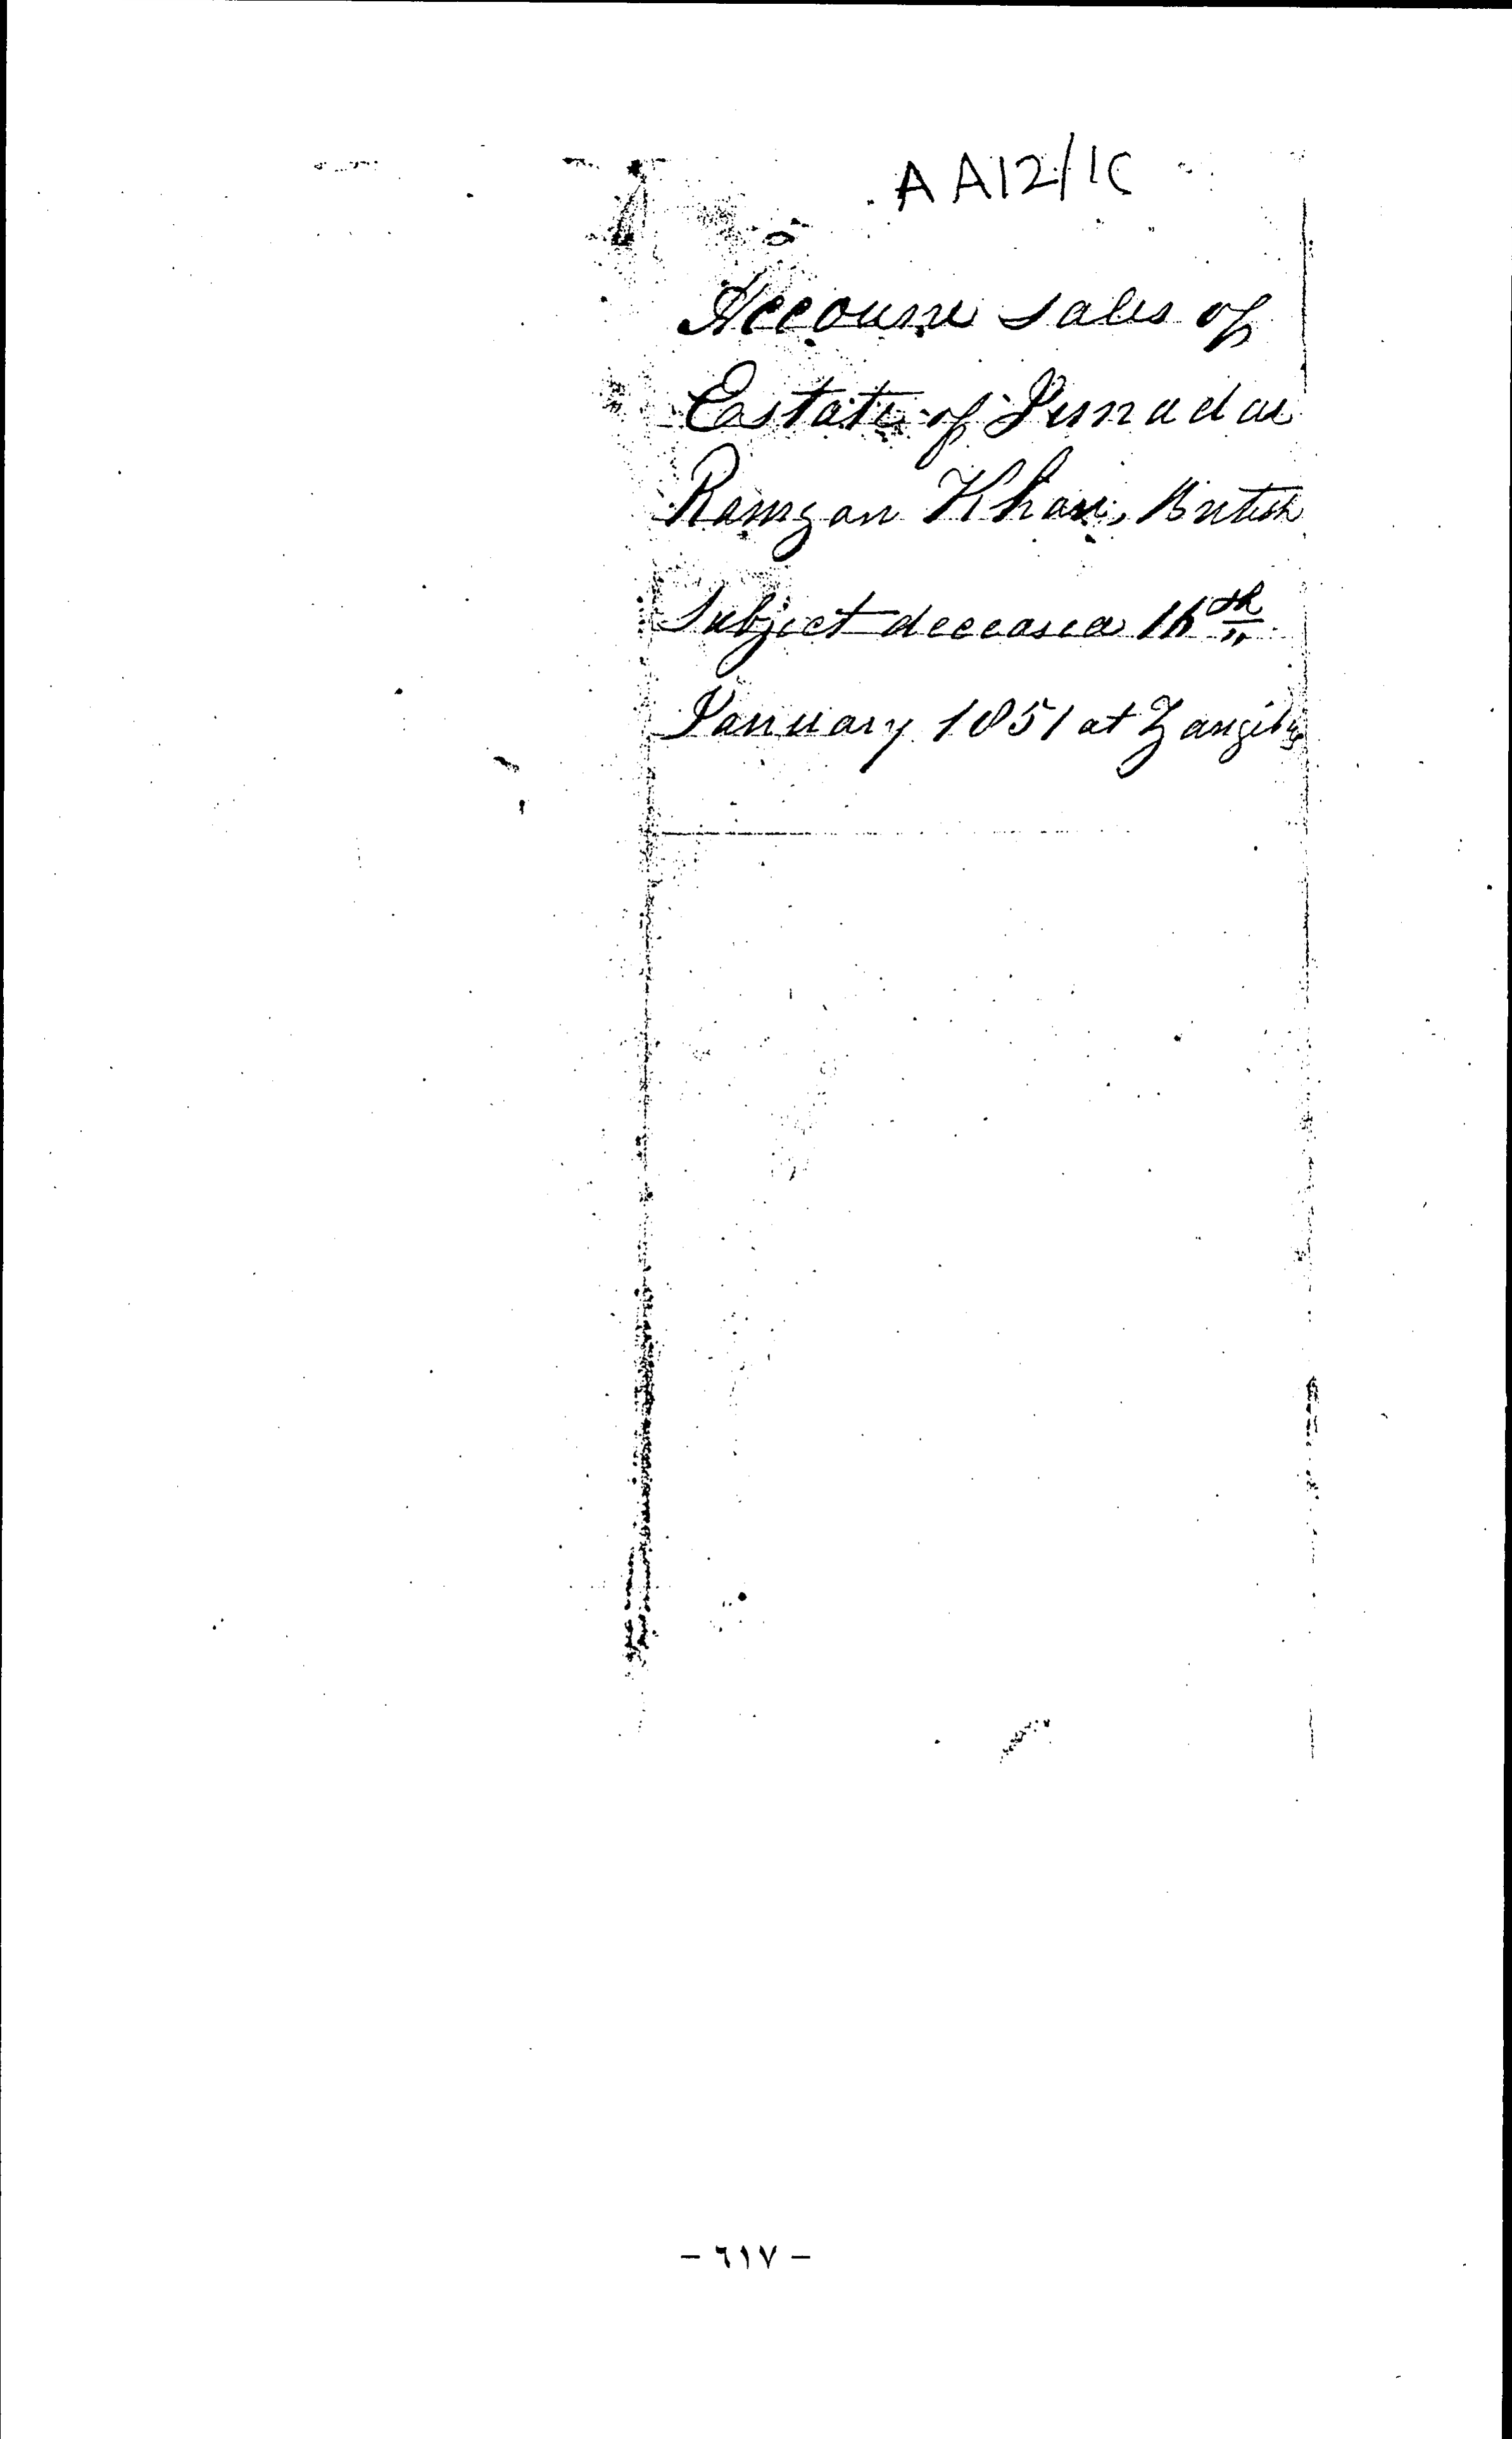 AA12/1C
Account sales of
Estate of Jemadar
Ramzan Khan, British
Subject deceased 16th
January 1851 at Zanzibar
- ٦١٧ -